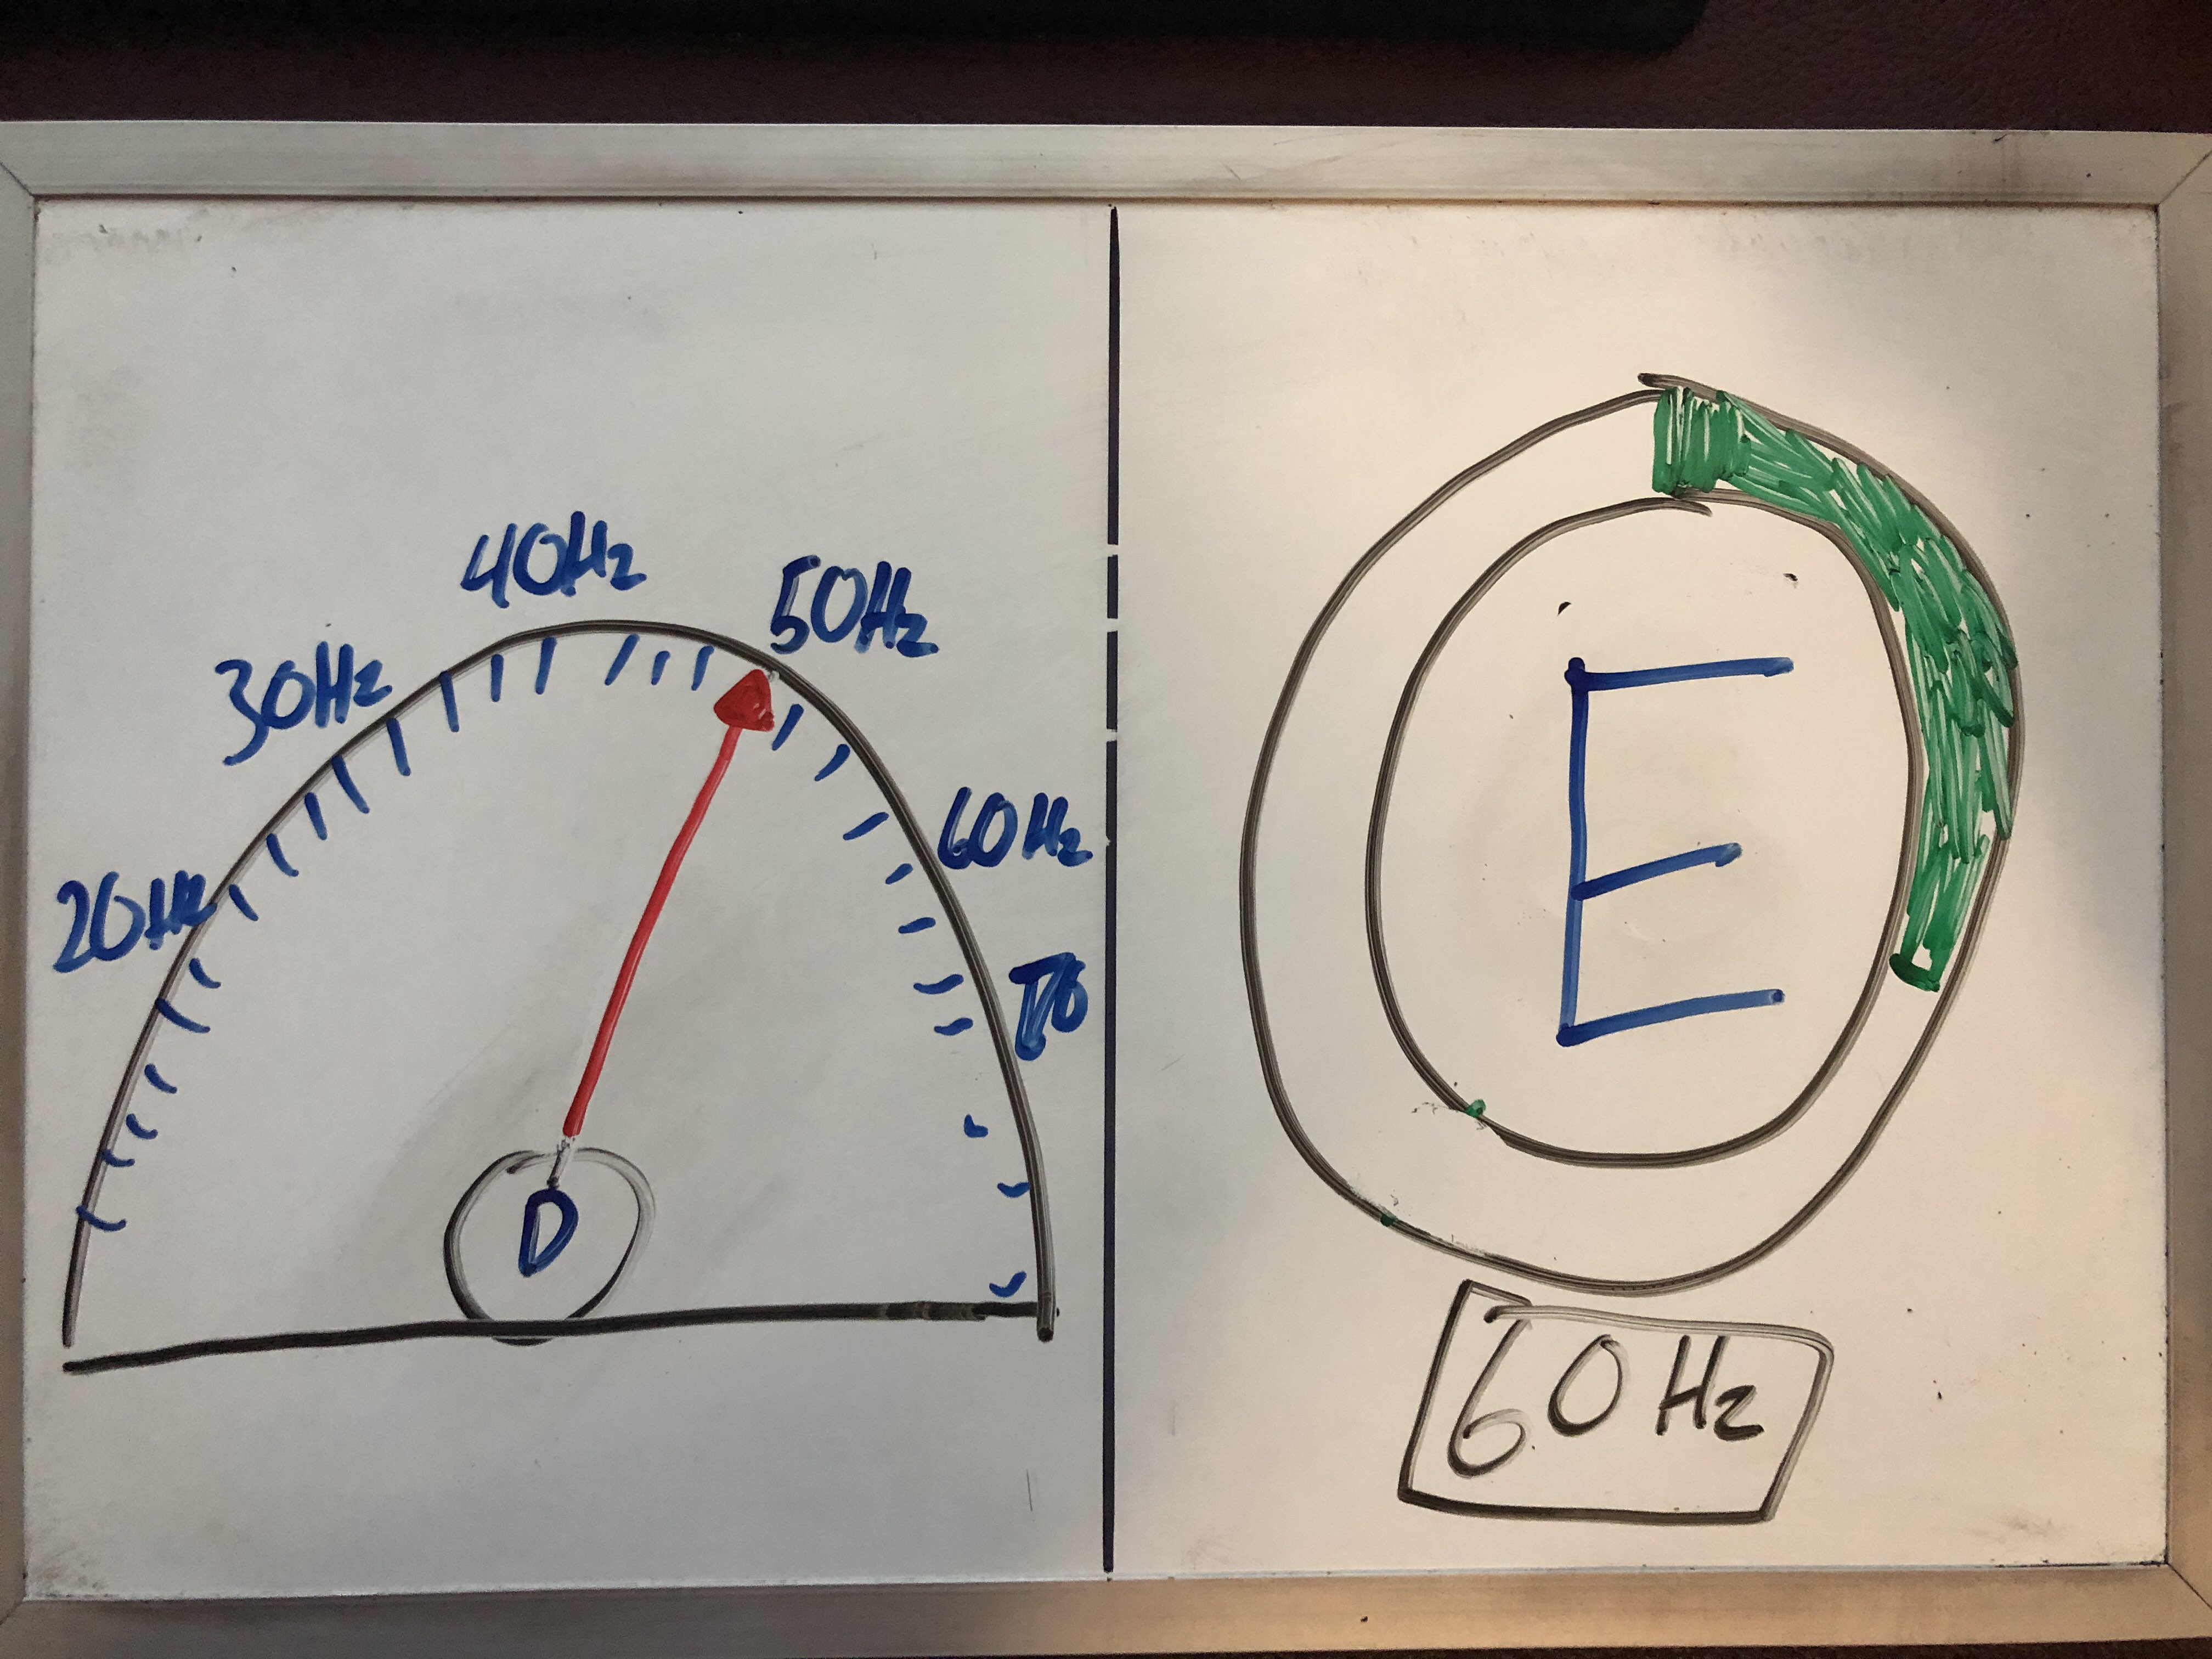 40Hz
50Hz
30Hz
60Hz
20Hz
70
D
E
60Hz